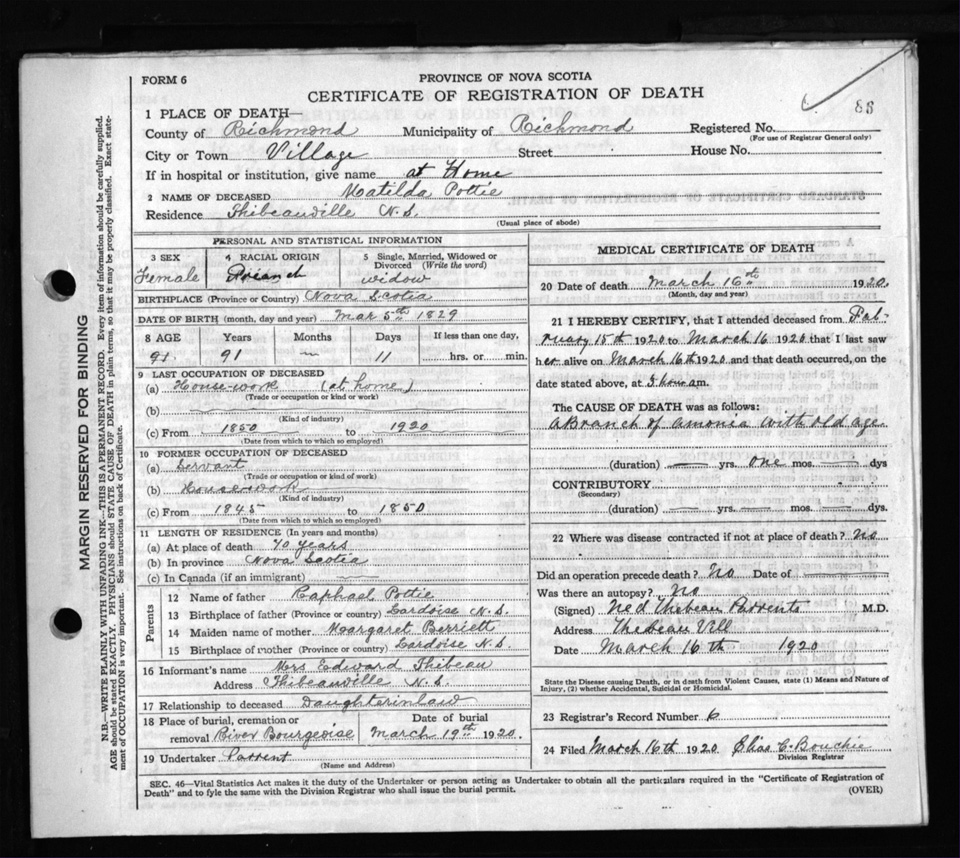 FORM 6
PROVINCE OF NOVA SCOTIA
CERTIFICATE OF REGISTRATION OF DEATH
88
1 PLACE OF DEATH—
County of Richmond Municipality of Richmond Registered No.
(For use of Registrar General only)
City or Town Village Street House No.
If in hospital or institution, give name at Home
2 NAME OF DECEASED Matilda Pottie
Residence Thibeauville N.S.
(Usual place of abode)
PERSONAL AND STATISTICAL INFORMATION
3 SEX Female
4 RACIAL ORIGIN
5 Single, Married, Widowed or Divorced (Write the word) widow
BIRTHPLACE (Province or Country) Nova Scotia
DATE OF BIRTH (month, day and year) Mar 5th 1829
8 AGE Years Months Days If less than one day,
91. 91 — 11 hrs. or min.
9 LAST OCCUPATION OF DECEASED
(a) House-work (at home)
(Trade or occupation or kind or work)
(b)
(Kind of industry)
(c) From 1850 to 1920
(Date from which to which so employed)
10 FORMER OCCUPATION OF DECEASED
(a) Servant
(Trade or occupation or kind of work)
(b) Housework
(Kind of industry)
(c) From 1845 to 1850
(Date from which to which so employed)
11 LENGTH OF RESIDENCE (In years and months)
(a) At place of death 70 years
(b) In province Nova Scotia
(c) In Canada (if an immigrant)
Parents
12 Name of father Raphael Pottie
13 Birthplace of father (Province or country) Lardoise N.S.
14 Maiden name of mother Margaret Berriett
15 Birthplace of mother (Province or country) Lardoise N.S.
16 Informant's name Mrs Edward Thibeau
Address Thibeauville N.S.
17 Relationship to deceased Daughterinlaw
18 Place of burial, cremation or removal River Bourgeoise
Date of burial March 19th 1920.
19 Undertaker Parrent
(Name and Address)
MEDICAL CERTIFICATE OF DEATH
20 Date of death March 16th 1920.
(Month, day and year)
21 I HEREBY CERTIFY, that I attended deceased from Feb-
ruary 15th 1920 to March 16 1920 that I last saw
her alive on March 16th 1920 and that death occurred, on the
date stated above, at 3 hour am.
The CAUSE OF DEATH was as follows:
A Branch of amonia with old age
(duration) — yrs. one mos. — dys
CONTRIBUTORY
(Secondary)
(duration) — yrs. — mos. — dys
22 Where was disease contracted if not at place of death? No
Did an operation precede death? No Date of —
Was there an autopsy? No
(Signed) Ned Thebeau Parrents M.D.
Address Thebeau Vill
Date March 16th 1920
State the Disease causing Death, or in death from Violent Causes, state (1) Means and Nature of Injury, (2) whether Accidental, Suicidal or Homicidal.
23 Registrar's Record Number 6
24 Filed March 16th 1920 Elias C. Bouchie
Division Registrar
SEC. 46—Vital Statistics Act makes it the duty of the Undertaker or person acting as Undertaker to obtain all the particulars required in the "Certificate of Registration of
Death" and to fyle the same with the Division Registrar who shall issue the burial permit. (OVER)
MARGIN RESERVED FOR BINDING
N.B.—WRITE PLAINLY WITH UNFADING INK—THIS IS A PERMANENT RECORD. Every item of information should be carefully supplied.
AGE should be stated EXACTLY. PHYSICIANS should STATE CAUSE OF DEATH in plain terms, so that it may be properly classified. Exact state-
ment of OCCUPATION is very important. See instructions on back of Certificate.